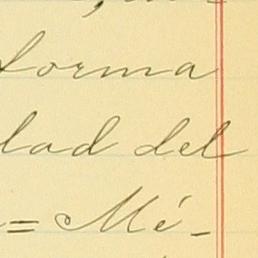 forma
dad del
= Mé-